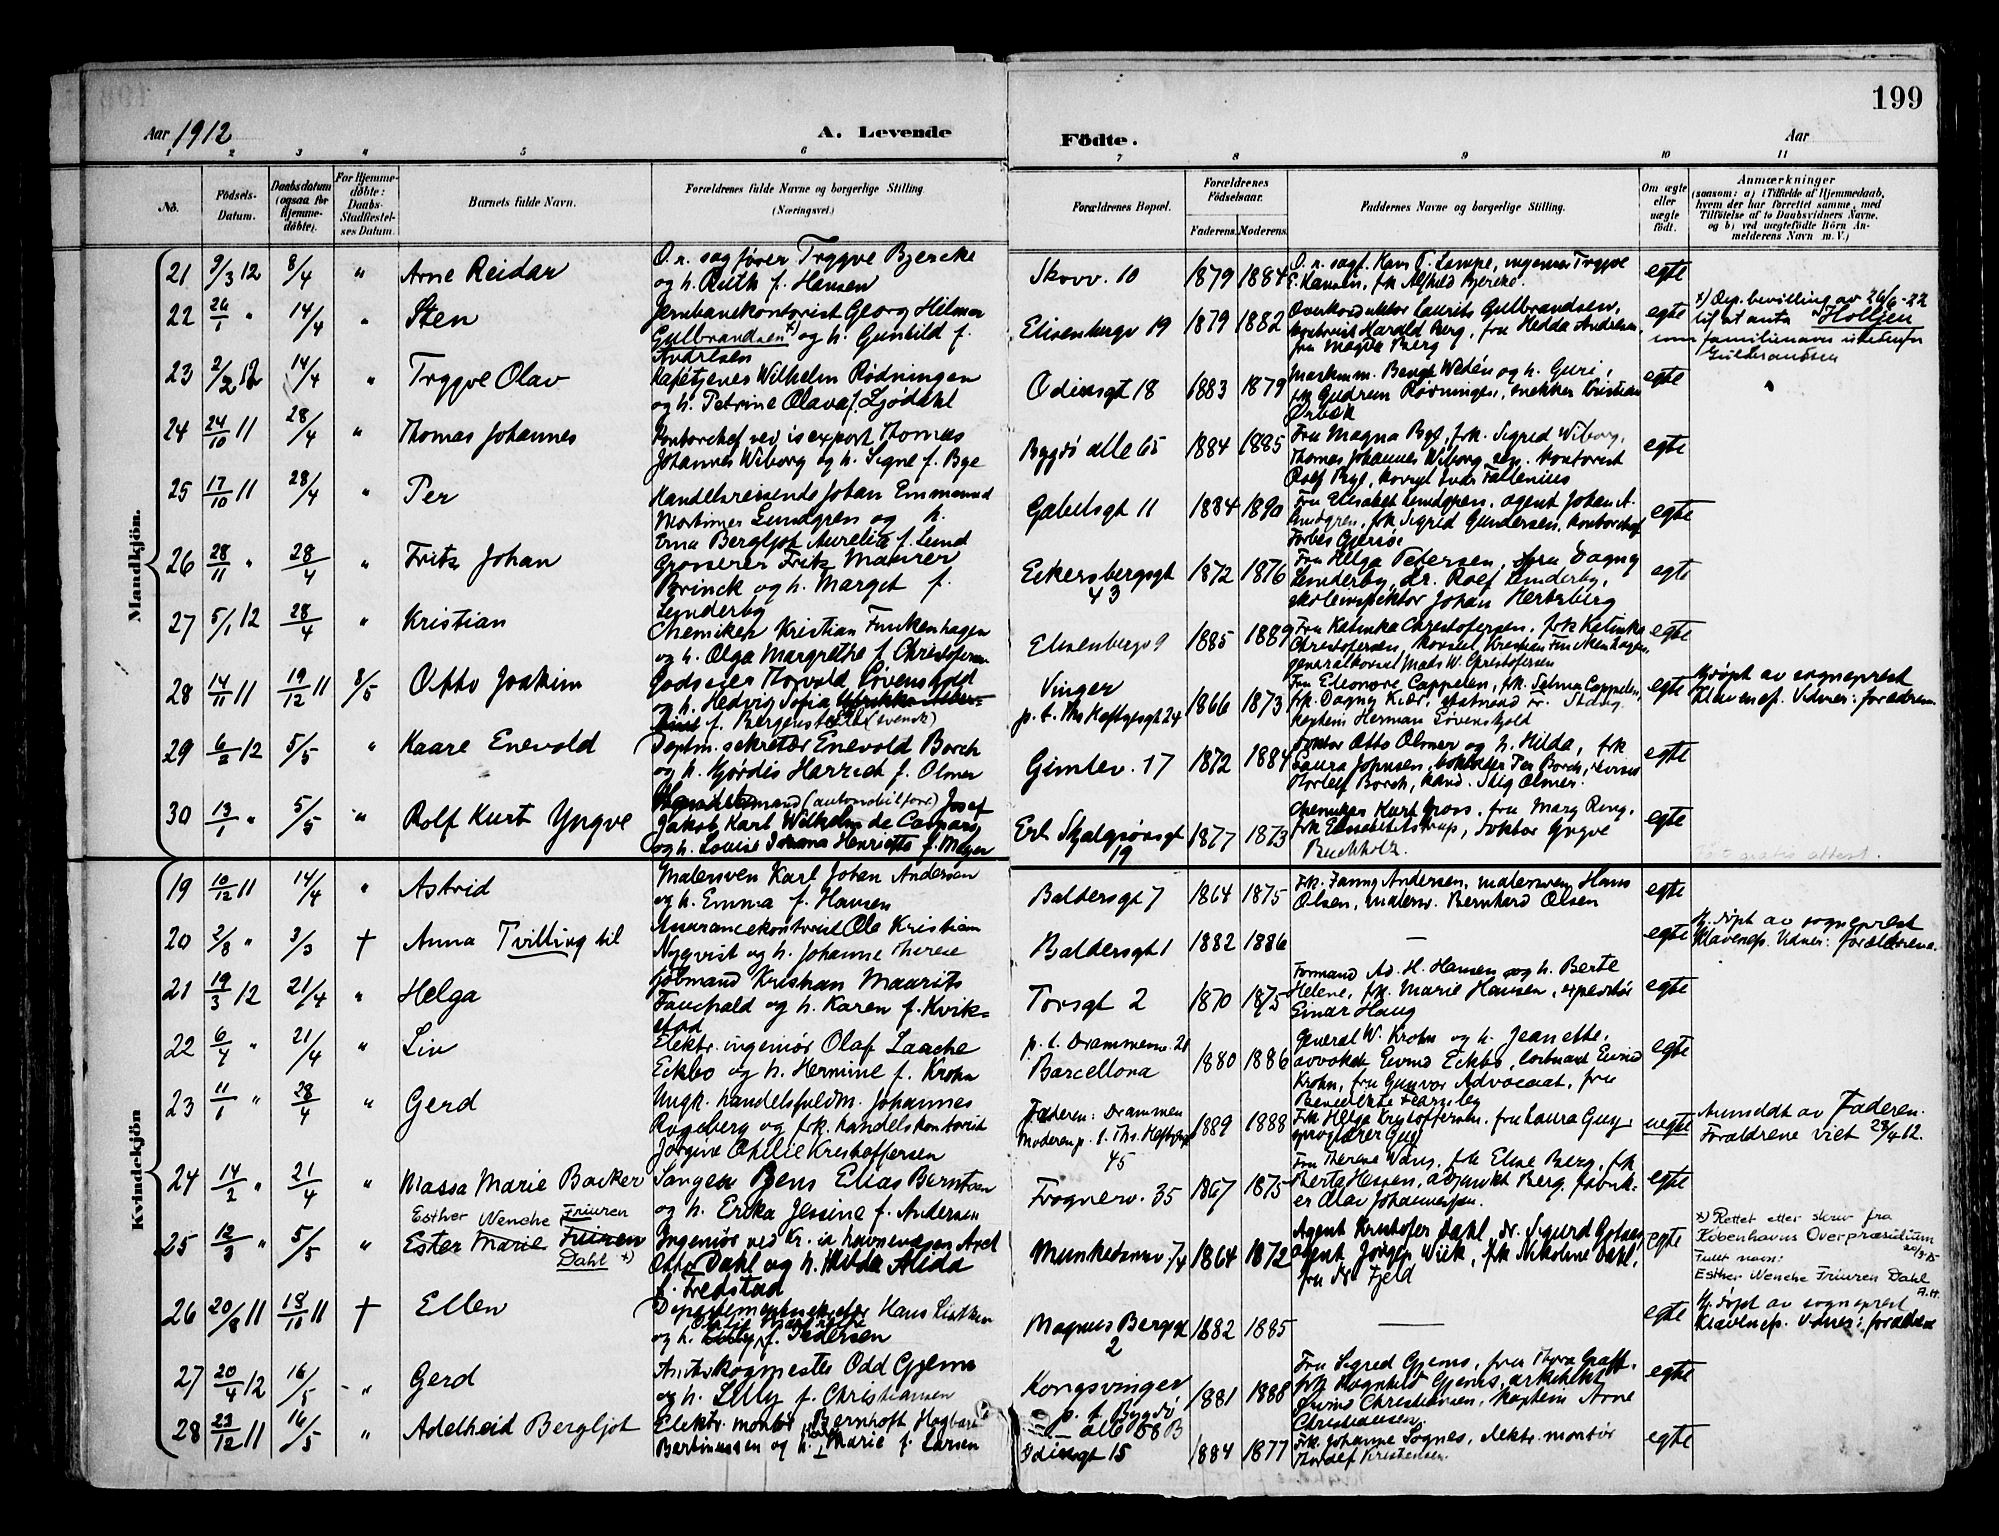 199
Aar 1912
A. Levende
Födte.
Aar
1 2 3 4 5 6 7 8 9 10 11
No.
Födsels-Datum.
Daabsdatum (ogsaa for Hjemme-döbte).
For Hjemme-döbte: Daabs-Stadfæstel-ses Datum.
Barnets fulde Navn.
Forældrenes fulde Navne og borgerlige Stilling. (Næringsvei.)
Forældrenes Bopæl.
Forældrenes Födselsaar.
Faderens. Moderens.
Faddernes Navne og borgerlige Stilling.
Om ægte eller uægte födt.
Anmærkninger
(saasom: a) i Tilfælde af Hjemmedaab,
hvem der har forrettet samme, med
Tilföielse af to Daabsvidners Navne,
og b) ved uægtefödte Börn An-
melderens Navn m. V.)
Mandkjön.
21 9/3 12 8/4 " Arne Reidar
O.r. sagfører Trygve Bjercke
og h. Ruth f. Hansen
Skovv. 10 1879 1884
egte
22 26/1 " 14/4 " Sten
Jernbanekontorist Georg Hilmer
Gulbrandsen x) og h. Gunhild f.
Andresen
Elisenbergv 19 1879 1882
Overkonduktør Laurits Gulbrandsen,
kontorist Harald Berg, fru Hedda Andresen,
fru Magda Berg
egte
x) Dep. bevilling av 26/6-22
til at anta Holtjen
som familienavn istedenfor
Gulbrandsen
23 2/2 12 14/4 " Trygve Olav
Kafétjener Wilhelm Rødningen
og h. Petrine Olava f. Ljødahl
Odinsgt 18 1883 1879
egte
24 24/10 11 28/4 " Thomas Johannes
Kontorchef ved isexport Thomas
Johannes Wiborg og h. Signe f. Bye
Bygdö alle 65 1884 1885
Fru Magna Bye, frk. Sigrid Wiborg,
Thomas Johannes Wiborg sen. kontorist
egte
25 17/10 11 28/4 " Per
Handelsreisende Johan Emmanuel
Mortimer Lundgren og h.
Erna Bergljot Aurelia f. Lund
Gabelsgt 11 1884 1890
Fru Elisabet Lundgren, agent Johan A.
Lundgren, frk Sigrid Gundersen, kontorchef
egte
26 28/11 " 28/4 " Fritz Johan
Grosserer Fritz Maurer
Brinck og h. Marget f.
Lunderby
Eckersbergsgt 43 1872 1876
Fru Helga Petersen, fru Dagny
Lunderby, dr. Rolf Lunderby,
skoleinspektør Johan Hertzberg
egte
27 5/1 12 28/4 " Kristian
Chemiker Kristian Funkenhagen
og h. Olga Margrethe f. Christofersen
Elisenbergv 9 1885 1889
Fru Katinka Christofersen, frk Katinka
Christofersen, konsul Kristian Funckenhagen,
generalkonsul Mads W. Christofersen
egte
28 14/11 11 19/12 11 8/5 Otto Joakim
Godseier Thorvald Løvenskiold
og h. Hedvig Sofia
f. Bergenstråhle (svensk)
Vinger
p.t. Ths Heftyesgt 24 1866 1873
Fru Eleonore Cappelen, frk. Selma Cappelen,
frk. Dagny Kiær, statsmand dr. Stang,
kaptein Herman Løvenskjold
egte
Hj.døpt av sogneprest
Klavenes. Vidner: forældrene
29 6/2 12 5/5 " Kaare Enevold
Deptm. sekretær Enevold Borch
og h. Hjördis Harriet f. Olmer
Gimlev. 17 1872 1884
Doktor Otto Olmer og h. Hilda, frk
egte
30 13/1 " 5/5 " Rolf Kurt Yngve
Handelsmand (automobilforr.) Josef
Jakob Karl Wilhelm de Caspary
og h. Louise Johanna Henriette f. Meyer
Erl. Skjalgsønsgt 19 1877 1873
Chemiker Kurt Gross, fru Marg Ring,
doktor Yngve
Buchholz.
egte
Kvindekjön
19 10/12 11 14/4 " Astrid
Malersven Karl Johan Andersen
og h. Emma f. Hansen
Baldersgt 7 1864 1875
Frk. Fanny Andersen, malersven Hans
Olsen, malersv. Bernhard Olsen
egte
20 2/8 " 3/3 † Anna Tvilling til
Assurancekontorist Ole Kristian
Nyqvist og h. Johanne Therese
Baldersgt 1 1882 1886
—
egte
Hj.døpt av sogneprest
Klavenes. Vidner: forældrene.
21 19/3 12 21/4 " Helga
Kristian Maurits
Fauchald og h. Karen f. Kvik-
stad
Torsgt 2 1870 1875
Formand Ad. H. Hansen og h. Berte
Helene, frk. Marie Hansen, expeditør
Einar Haug
egte
22 6/4 " 21/4 " Liv
Elektr. ingeniør Olaf Laache
Eckbo og h. Hermine f. Krohn
p.t. Drammensv. 21
Barcellona 1880 1886
General W. Krohn og h. Jeanette,
advokat Eivind Eckbo, løitnant Eivind
Krohn, fru Gunvor Advocaat, fru
Benedikte Fearnley
egte
23 11/1 " 28/4 " Gerd
Ungk. handelsfuldm. Johannes
Rogeberg og frk. handelskontorist
Jørgine Othilie Kristoffersen
Faderen: Drammen
Moderen p.t. Ths. Heftyesgt
45 1889 1888
Frk Helga Kristoffersen, fru Laura Guy,
sproglærer Guy
uegte
Anmeldt av Faderen.
Forældrene viet 28/4 12.
24 14/2 " 21/4 " Massa Marie Backer
Sanger Bjens Elias Berntsen
og h. Erika Jessine f. Andersen
Frognerv. 35 1867 1875
Berta Hessen, adjunkt Berg, fabrik-
eier Olav Johannessen.
egte
25 12/3 " 5/5 " Esther Wenche Friuren
Ester Marie Friuren
Dahl x)
Ingeniør ved Kr.ia havnevæsen Axel
Otto Dahl og h. Hilda Alida
f. Fredstad
Munkedamsv 74 1864 1872
Agent Kristofer Dahl, dr. Sigurd Gotaas,
agent Jørgen Wiik, frk Nikoline Dahl,
fru dr. Fjeld
egte
x) Rettet etter skriv fra
Københavns Overpræsidium
20/3-15
Fullt navn:
Esther Wenche Friuren Dahl
A.H.
26 20/8 11 18/11 11 † Ellen
Departementssekretær Hans Lüthken
og h. f. Pedersen
Magnus Bergsgt 2 1882 1885
—
egte
Hj.døpt av sogneprest
Klavenes. Vidner: forældrene
27 20/4 12 16/5 " Gerd
Amtsskogmester Odd Gjems
og h. Lilly f. Christiansen
Kongsvinger
p.t. Bygdö
alle 58 B 1881 1888
Fru Sigrid Gjems, fru Thora Graff,
frk Ragnhild Gjems, arkitekt
Øivind Christiansen, kaptein Arne
Christiansen.
egte
28 23/12 11 16/5 " Adelheid Bergljot
Elektr. montør Bernhoft Hagbart
Bertinussen og h. Marie f. Larsen
Odinsgt 15 1884 1877
Frk. Johanne Sognes, elektr. montør
Thorolf Kristensen.
egte